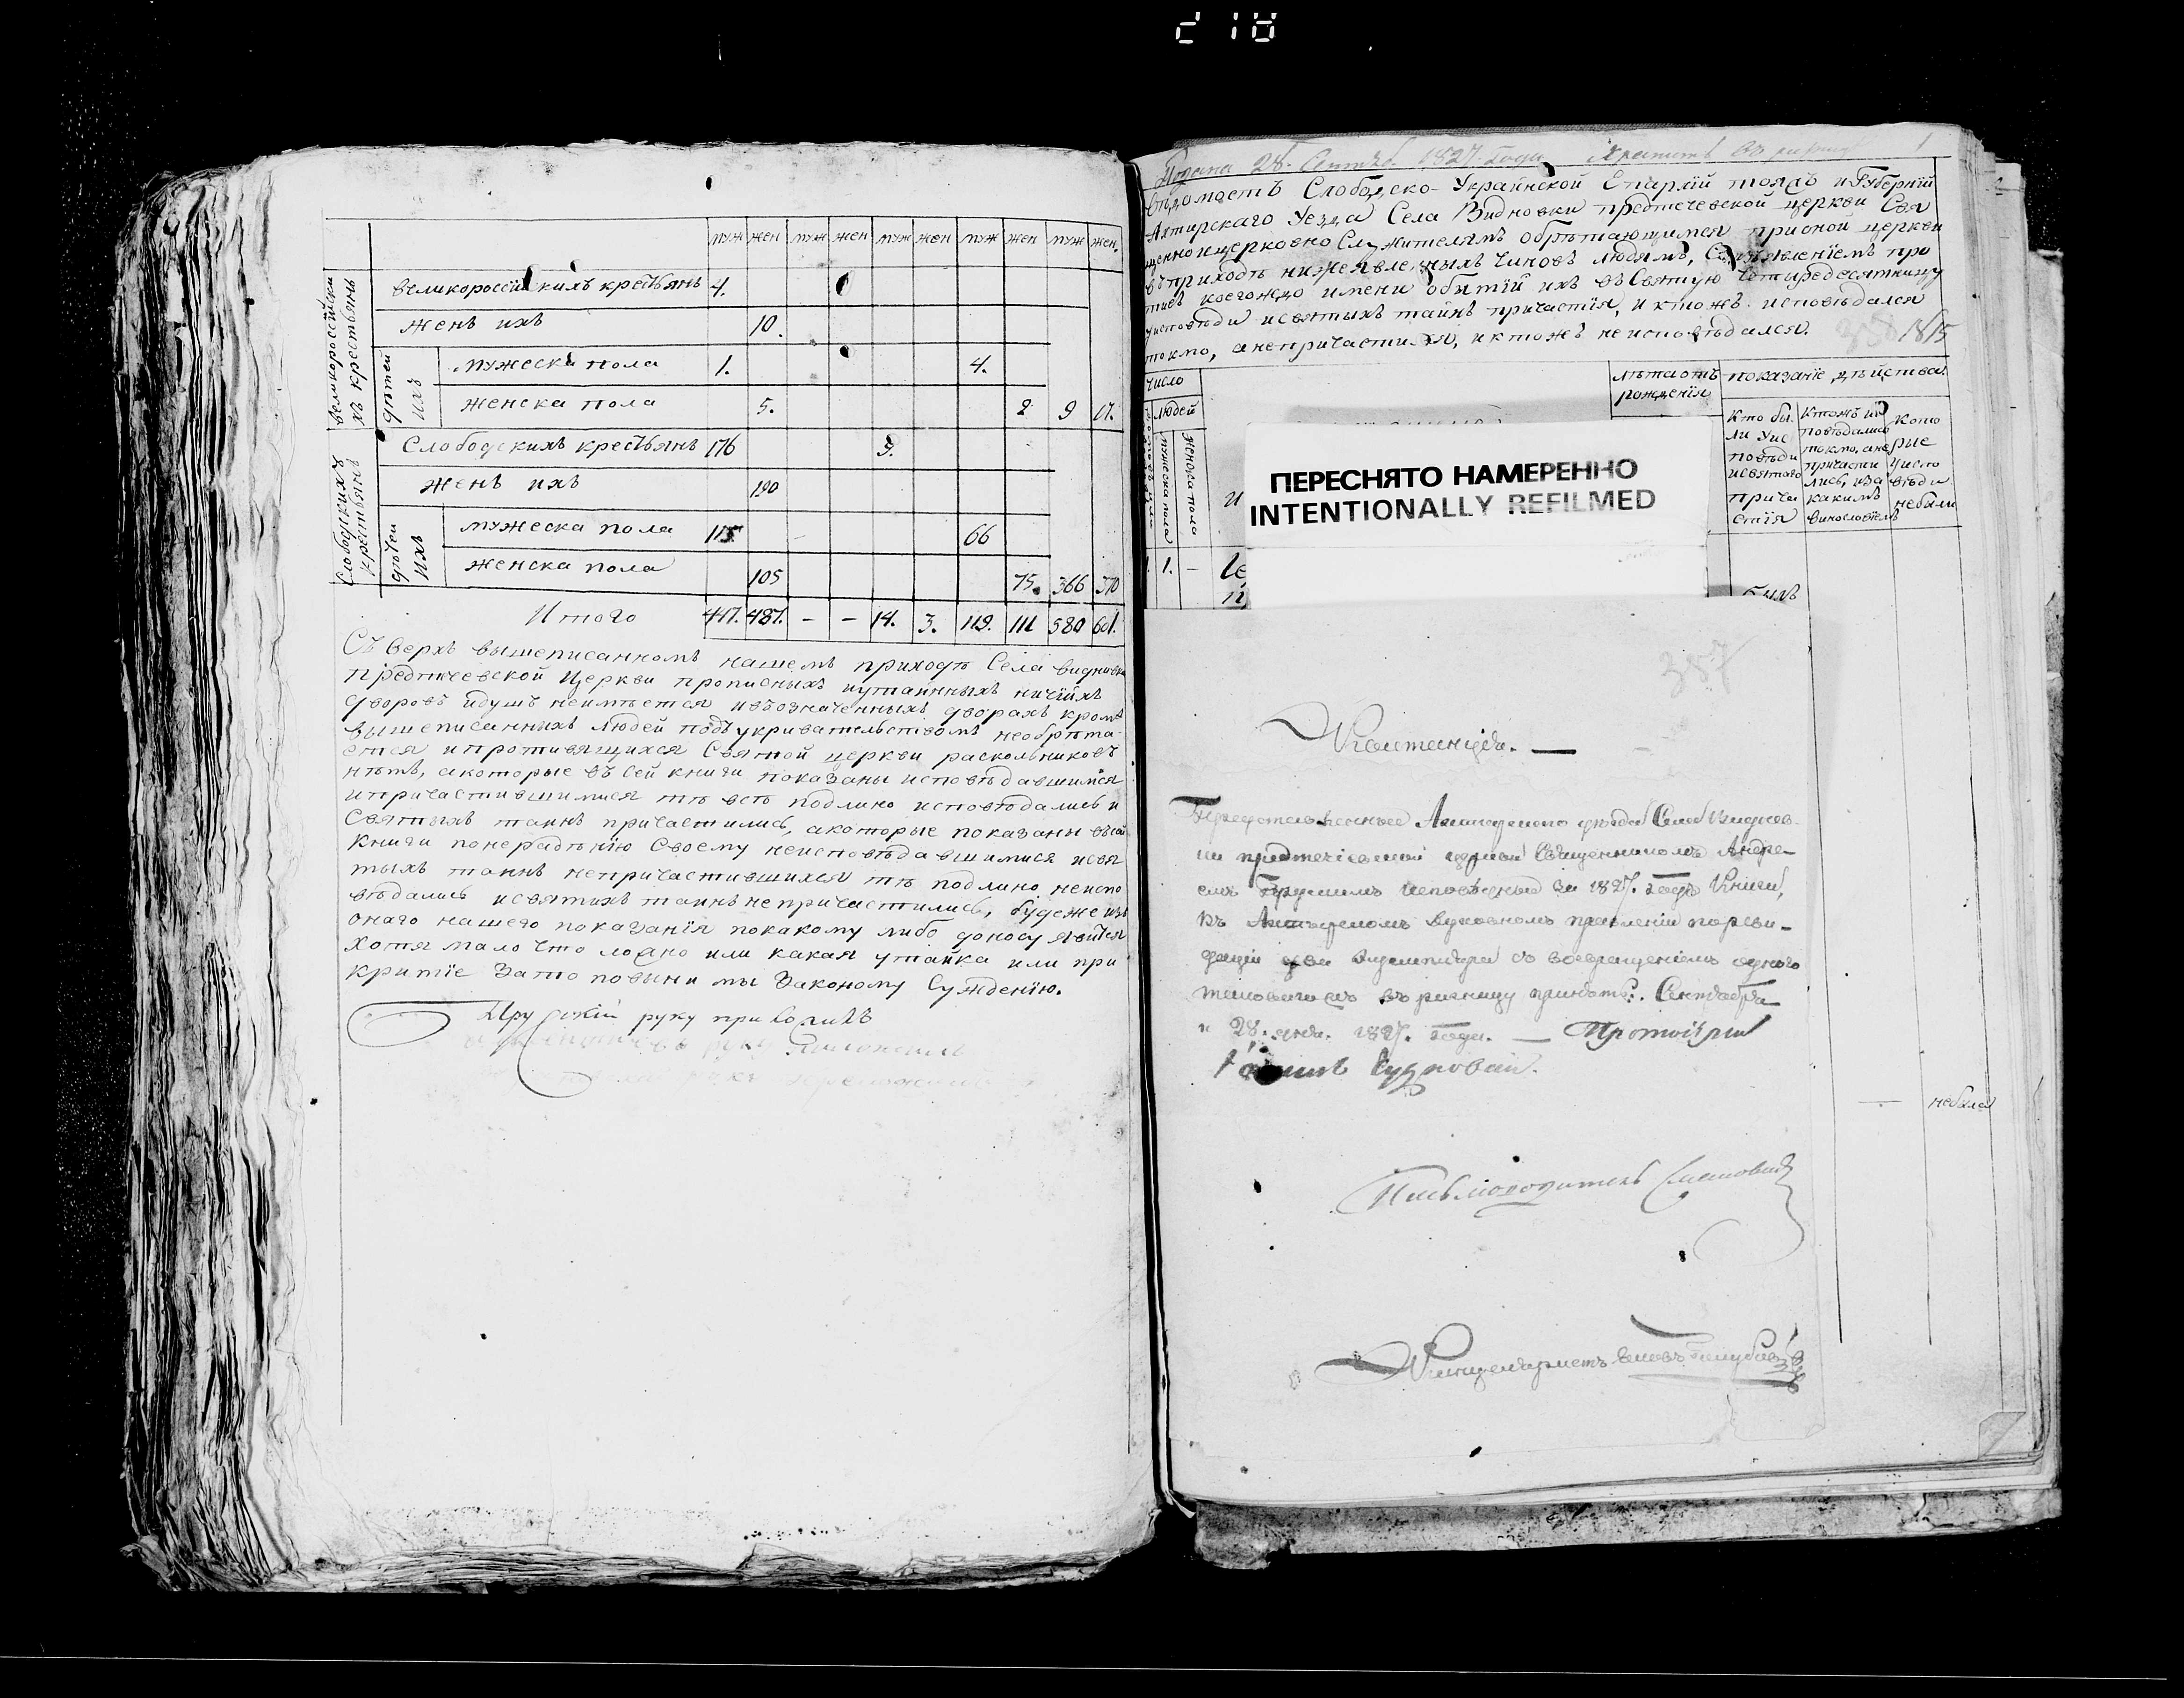 муж жен муж жен муж жен муж жен муж жен.
великороссийскихъ крестьянъ
великороссийскихъ крестьянъ 4.
женъ ихъ 10.
детей ихъ
мужеска пола 1. 4.
женска пола 5. 2 9 17.
Слободскихъ крестьянъ
Слободскихъ крестьянъ 176 9.
женъ ихъ 190
детей ихъ
мужеска пола 115 66
женска пола 105 75. 366 370
Итого 417. 487. - - 14. 3. 119. 111 580 601.
Съ верхъ вышеписанномъ нашемъ приходѣ Села Видновки
предтечевской Церкви прописныхъ иутаинныхъ ничіихъ
дворовъ идушъ неимѣется ивъозначенныхъ дворахъ кромѣ
вышеписанныхъ людей подъукривательствомъ необрѣта-
ется ипротивящихся Святой церкви раскольниковъ
нѣтъ, акоторые въ сей книги показаны исповѣдавшимися
ипричастившимися тѣ всѣ подлино исповѣдались и
Святыхъ таинъ причастились, акоторые показаны въсей
книги понерадѣнію Своему неисповѣдавшимися исвя
тыхъ таинъ непричастившихся тѣ подлино неиспо
вѣдались исвятихъ таинъ непричастились, будеже изъ
онаго нашего показанія покакому либо доносу явится
хотя мало что ложно или какая утайка или при
критіе Зато повини мы Законому Сужденію.
руку приложилъ
руку приложилъ
Подана 28. Сентяб. 1827. года Хранить въ ризниц 1
Вѣдомость Слободско-Украинской Епархіи тояжъ иГуберніи
Ахтирскаго Уезда Села Видновки предтечевской церкви Свя
щенноицерковно Служителямъ обрѣтающимся прионой церкви
въприходѣ нижеявленныхъ Чиновъ людямъ, Сизъявленіемъ про
тивъ коегождо имени обытіи ихъ въСвятую Четыредесятницу
уисповѣди исвятыхъ таинъ причастія, иктожъ исповѣдался
токмо, анепричастился, иктожъ неисповѣдался. 1815
число людей
мужеска пола
Женска пола
лѣтаотъ рожденія
показаніе дѣйства.
Кто бы ли уис повѣди исвятаго прича стія
Ктожъ ис повѣдались токмо, ане причасти лись, иза какимъ винословіемъ
Кото рые уиспо вѣди небыли
ПЕРЕСНЯТО НАМЕРЕННО
INTENTIONALLY REFILMED
1. 1. -
былъ
387
Квитанція.
Представленные Ахтырскаго уѣзда Села Виднов-
ки предтечевской церкви Священникомъ Андре-
емъ исповѣдные за 1827. годъ Книги,
въ Ахтырскомъ Духовномъ правленіи пореви-
зіи два Экземпляра со возвращеніемъ одного
таковаго въ ризницу приняты. Сентября
28. дня. 1827. года. — Протоіерей
небыла
Письмоводитель
Канцеляристъ